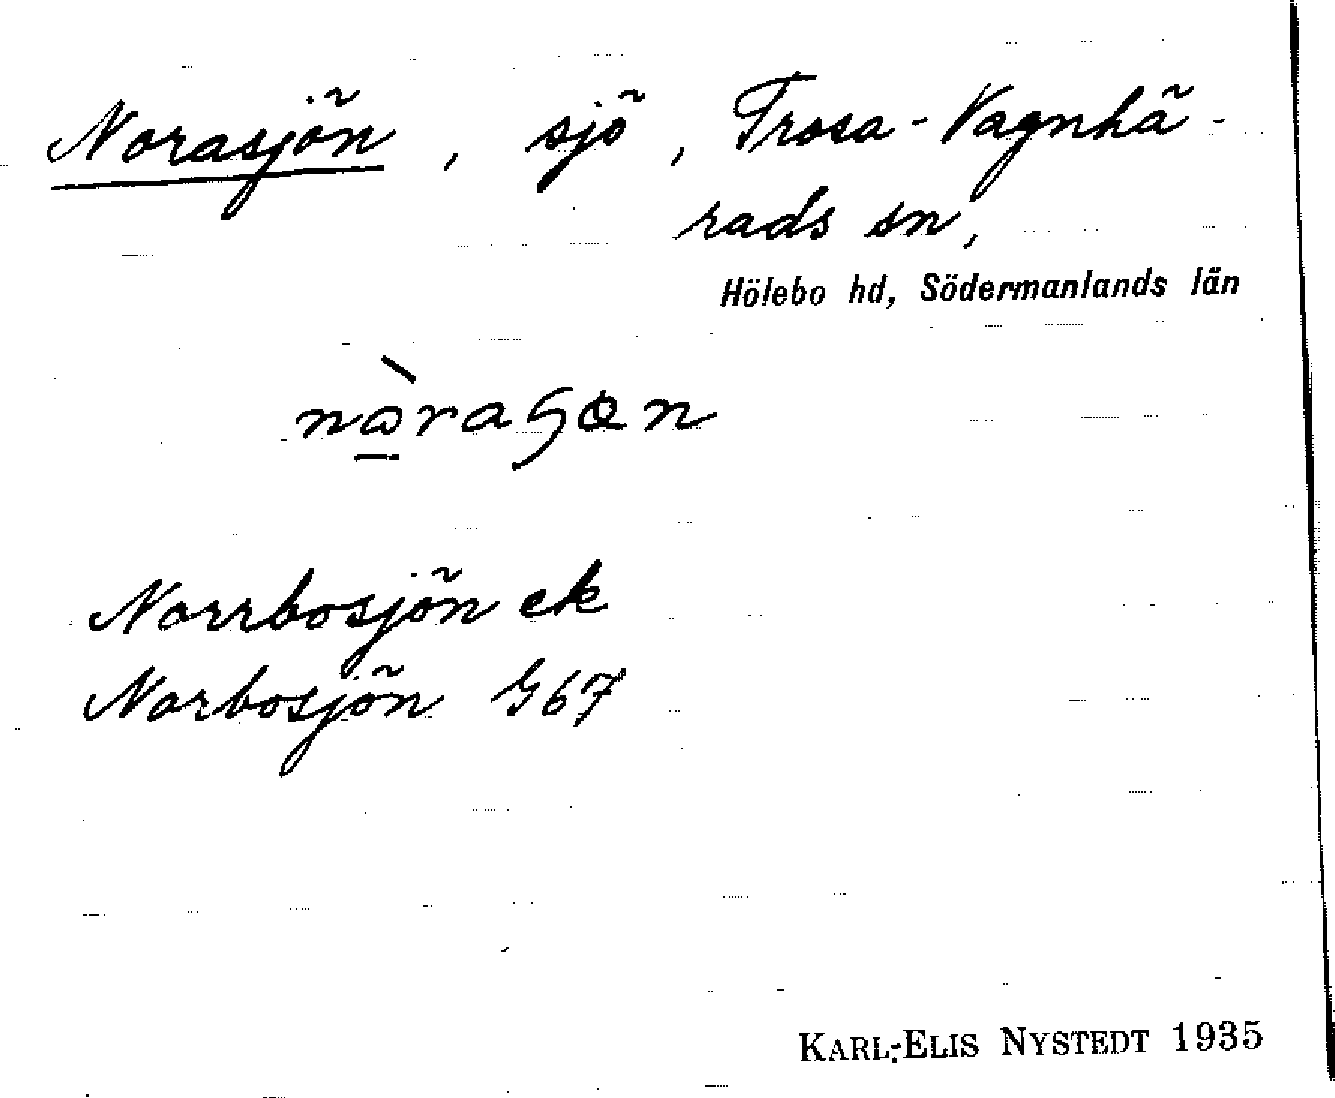 Norasjön, sjö, Trosa-Vagnhä-
rads sn,
Hölebo hd, Södermanlands län
Norrbosjön ek
Norbosjön G67
KARL-ELIS NYSTEDT 1935